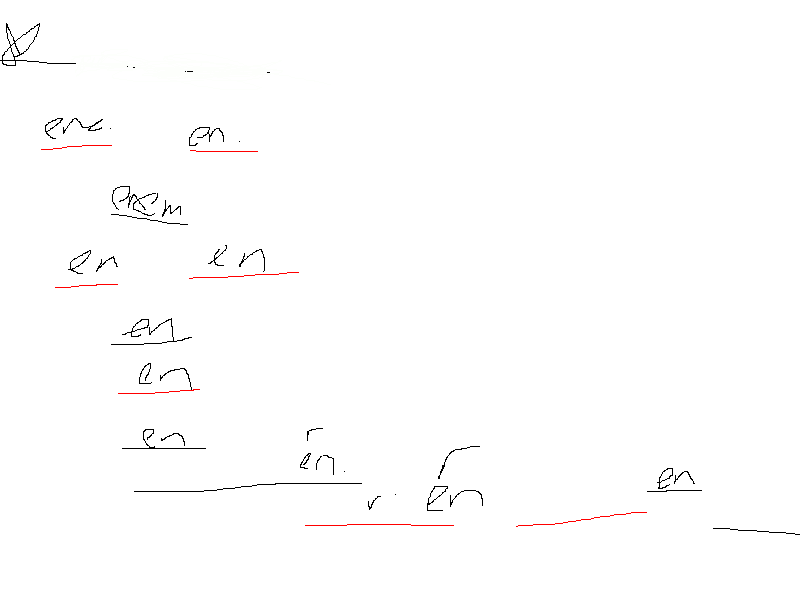 enc. en.
enem
en en
en
en
en r en.
r. en
en